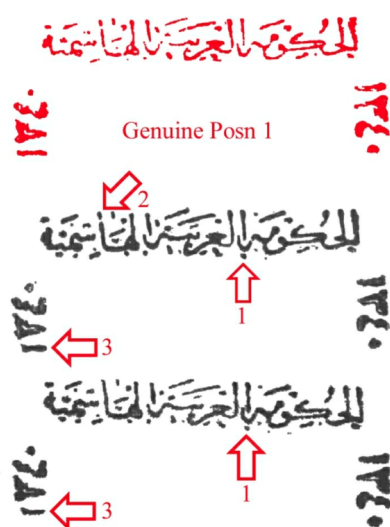 الحكومة العربية الهاشمية
١٣٤٠
Genuine Posn 1
2
الحكومة العربية الهاشمية
1
١٣٤٠
3
الحكومة العربية الهاشمية
1
١٣٤٠
3